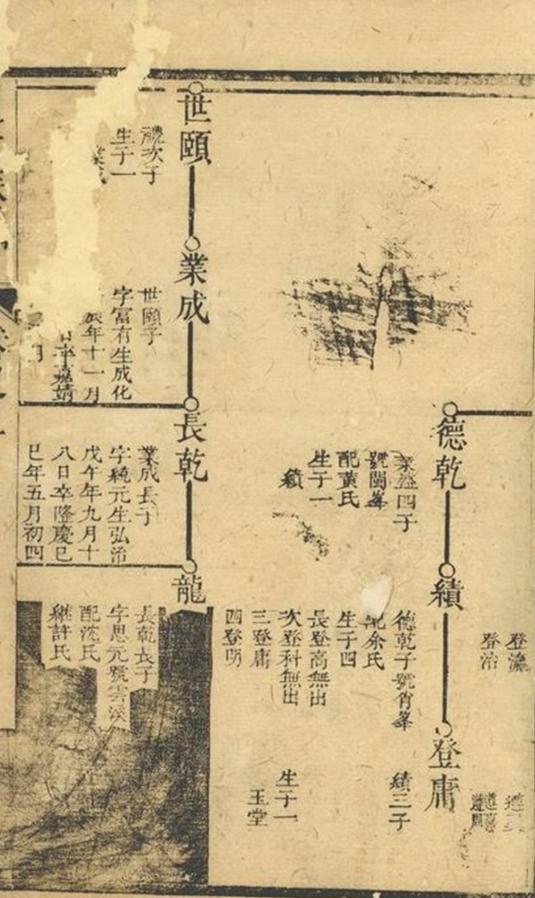 登瀛
登治
德乾
業盛四子
號閩峯
配黃氏
生子一
績
績
德乾子號肖峯
配余氏
生子四
長登高無出
次登科無出
三登庸
四登明
登庸
績三子
生子一
玉堂
世頤
禮次子
生子一
業成
世頤子
字富有生成化
辰年十一月
日卒嘉靖
月
長乾
業成長子
字純元生弘治
戊午年九月十
八日卒隆慶巳
巳年五月初四
龍
長乾長子
字思元號雲溪
配沈氏
繼許氏